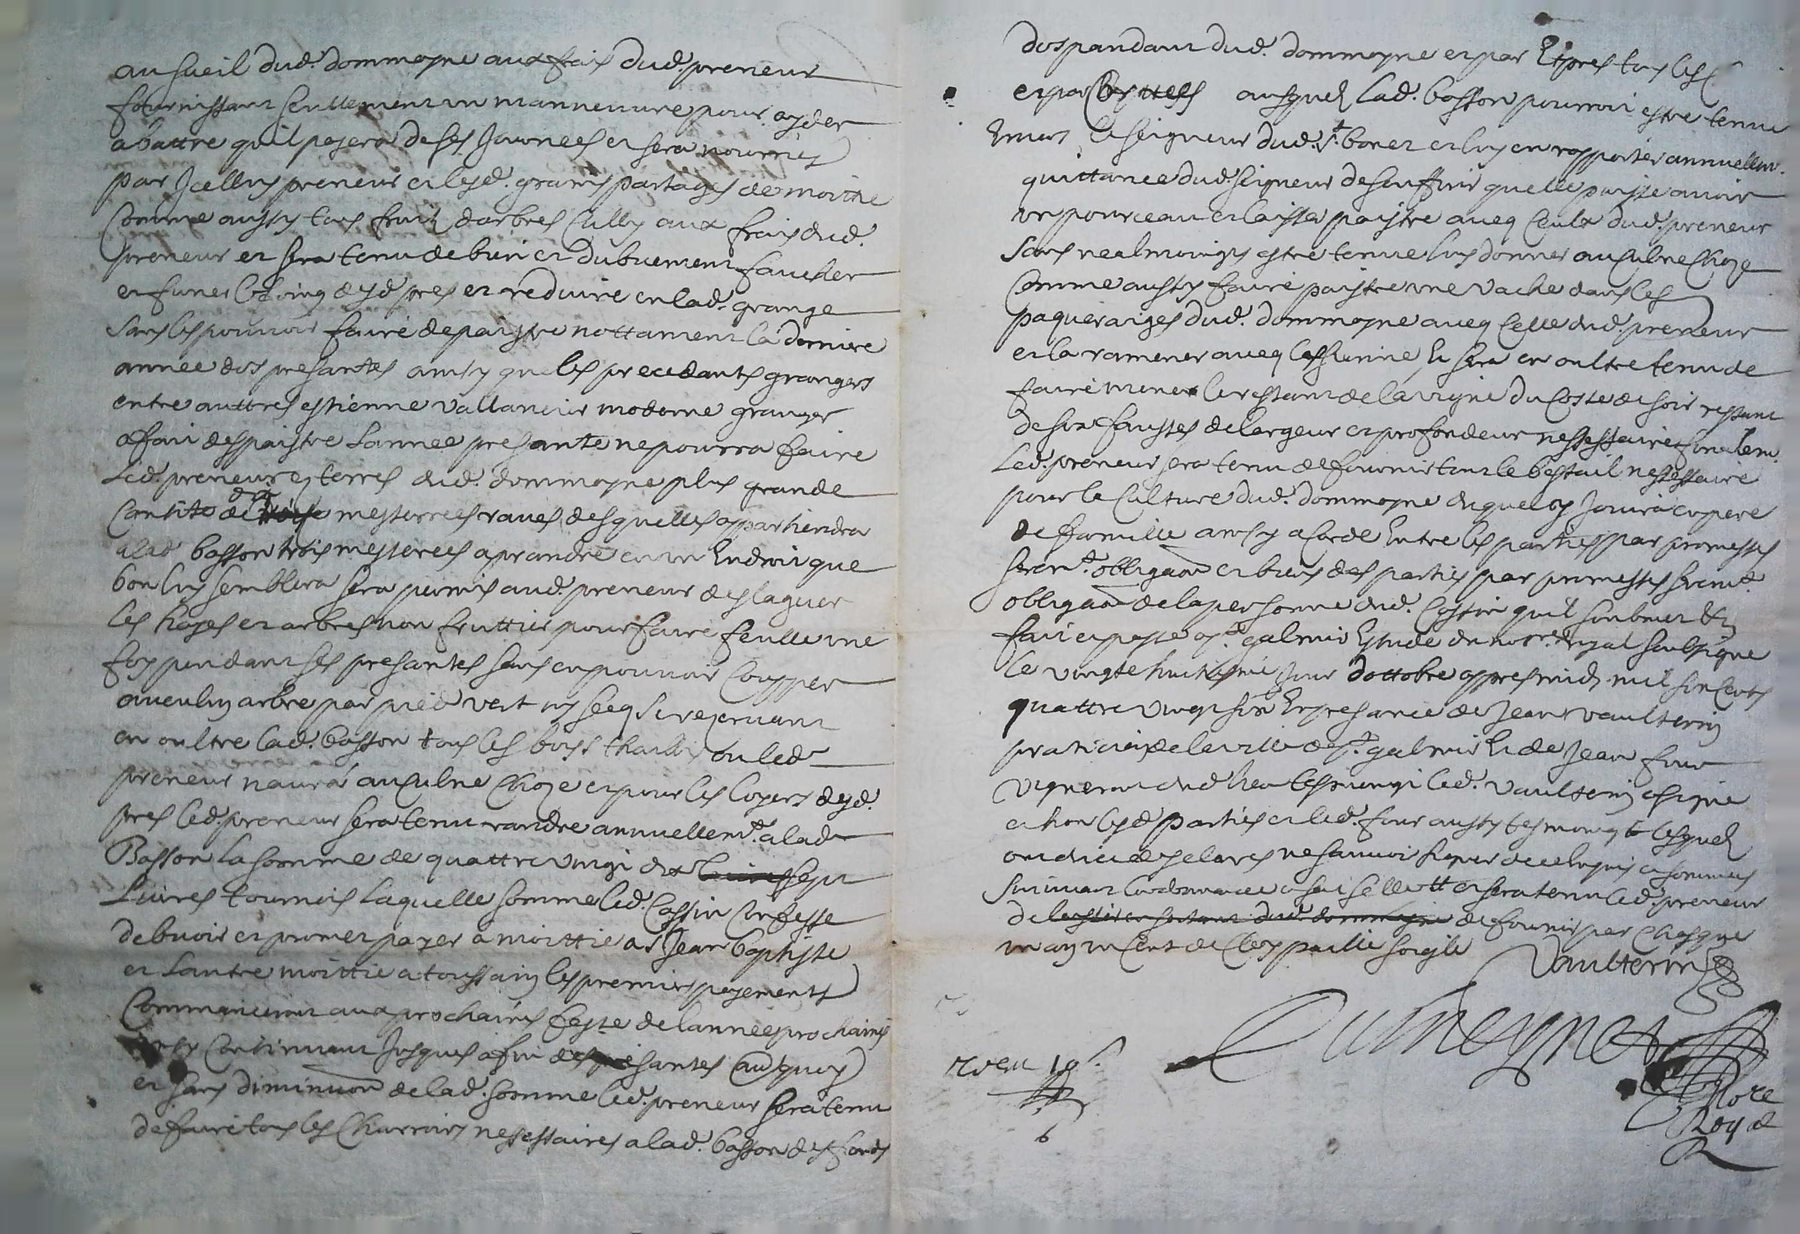 au sueil dud. dommayne aux frais dud. preneur
fournissant seullement un manneuvre pour ayder
a battre quil payera de ses Journees et sera nourriy
par Icelluy preneur et lesd. grains partagés de moittie
Comme aussy tous fruitz darbres Cullis aux frais dud.
preneur et sera tenu de bien et dubuement faucher
et funer le foing desd pres et reduire en lad. grange
sans les pouvoir faire depaistre nottament la derniere
annee des presantes ainsy que les precedants grangers
entre auttres estienne vallancier moderne granger
a fait despaistre Lannee presante ne pourra faire
Led. preneur ez terres dud. dommayne plus grande
Cantite de mesterees raves desquelles appartiendra
a lad basson trois mesterees a prandre en un Endroit que
bon luy semblera sera permis aud. preneur deslaguer
Les hayes et arbres non fruttiers pour faire feulle une
foy pendant les presantes sans en pouvoir Coupper
aucung arbre par pied vert ny secq se reservant
en oultre lad. basson tous les boys thaillis ou led.
preneur naura aulcune Choze et pour les loyers desd.
pres led. preneur sera tenu randre annuellemt. a lad.
Basson la somme de quattre vingt dix sept
Livres tournois laquelle somme led. Cossin Confesse
debvoir et promet payer a moittie a st Jean baptiste
et Lautre moittie a toussaing les premiers payements
Commanceront aux prochaines feste de lannee prochaine
et Continuant Jusques a fin des presantes au quoy
et sans diminuon de lad. somme led. preneur sera tenu
de faire tous les Charrois nessessaires a lad. basson des fonds
despandant dud. dommayne et par Expres tous les
et par ausquelz lad. basson pourroit estre tenue
Envers le seigneur dud. st. bonet et luy en rapporter annuellemt.
quittance dud. seigneur de souffrir quelle puisse avoir
un pourceau et laisser paistre avecq Ceulx dud. preneur
sans nealmoings estre tenue luy donner aulcune Choze
Comme aussy faire paistre une vache dans les
paqueraiges dud. dommayne avecq Celle dud. preneur
et la ramener avecq la sienne Et sera en oultre tenu de
faire miner le restant de la vigne du Coste de soir restant
de six fausses de largeur et profondeur nessessaire
Led. preneur sera tenu de fournir tout le bestail nessessaire
pour la Culture dud. dommayne duquel il Jouira en pere
de famille ainsy a corde Entre les parties par promesses
seremt. obligaon et biens des parties par promesses seremt.
obligaon de la personne dud. Cossin quil soubmet
fait et passe a st. galmier Estude du nore. royal soubsigne
le vingt huitiesme Jour dottobre appres midy mil six Cents
quattre vingt six En presance de Jean vaulterin
praticien de la ville de st. galmier Et de Jean four
vigneron dud lieu tesmoingt led. vaulterin a signe
et non lesd parties et led. four aussy tesmoingt lesquelz
ont dict et declares ne sauvoir signer de ce enquis et sommes
suivant lordonnance et sera tenu led. preneur
de fournir par Chasque
an un Cent de Cley paille soigle
Vaulterin
Nore
Royal